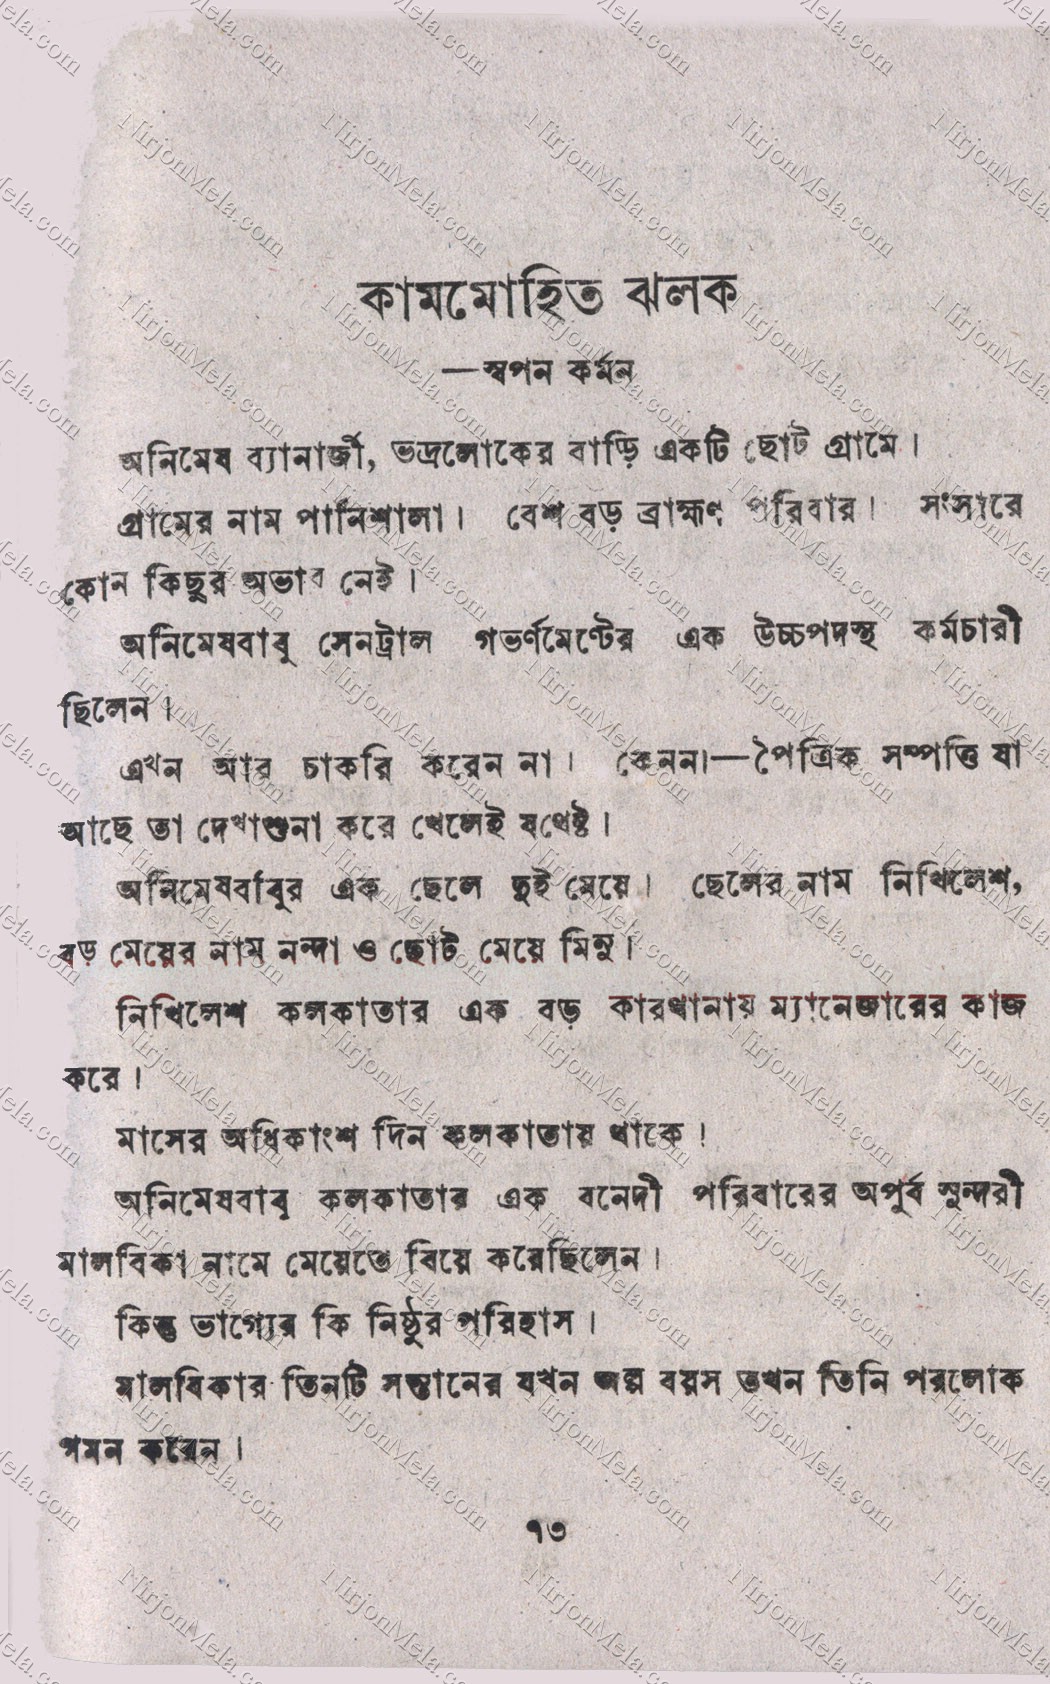 কামমোহিত ঝলক
—স্বপন কর্মন
অনিমেষ ব্যানার্জী, ভদ্রলোকের বাড়ি একটি ছোট গ্রামে।
গ্রামের নাম পানিশালা। বেশ বড় ব্রাহ্মণ পরিবার। সংসারে
কোন কিছুর অভাব নেই।
অনিমেষবাবু সেনট্রাল গভর্ণমেণ্টের এক উচ্চপদস্থ কর্মচারী
ছিলেন।
এখন আর চাকরি করেন না। কেননা—পৈত্রিক সম্পত্তি যা
আছে তা দেখাশুনা করে খেলেই যথেষ্ট।
অনিমেষবাবুর এক ছেলে দুই মেয়ে। ছেলের নাম নিখিলেশ,
বড় মেয়ের নাম নন্দা ও ছোট মেয়ে মিনু।
নিখিলেশ কলকাতার এক বড় কারখানায় ম্যানেজারের কাজ
করে।
মাসের অধিকাংশ দিন কলকাতায় থাকে!
অনিমেষবাবু কলকাতার এক বনেদী পরিবারের অপুর্ব সুন্দরী
মালবিকা নামে মেয়েতে বিয়ে করেছিলেন।
কিন্তু ভাগ্যের কি নিষ্ঠুর পরিহাস।
মালবিকার তিনটি সন্তানের যখন অল্প বয়স তখন তিনি পরলোক
গমন করেন।
৭৩
NirjonMela.com